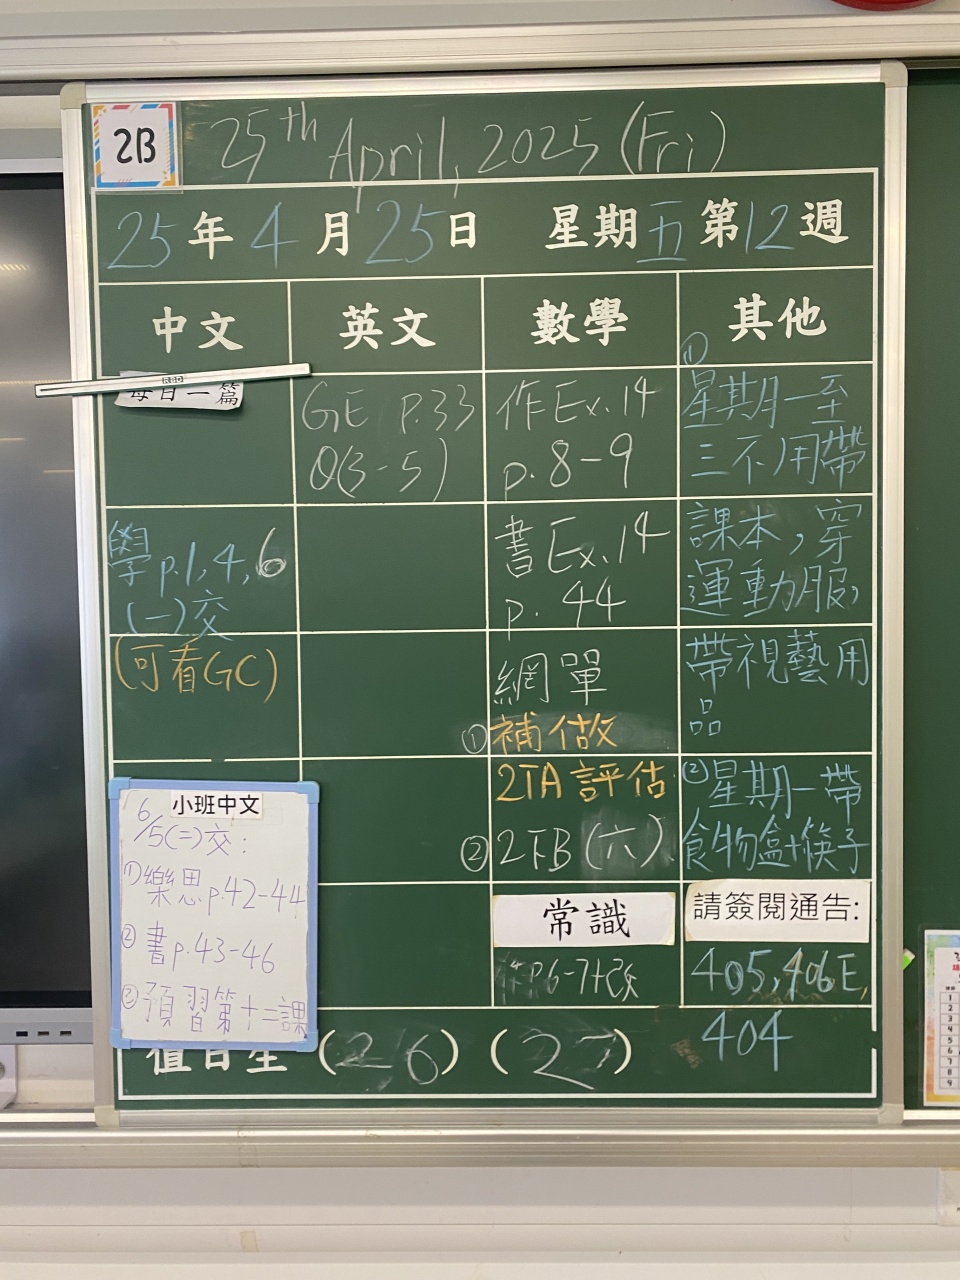 2B
25th April, 2025 (Fri)
25年4月25日 星期五第12週
中文
英文
數學
其他
每日一篇
學p.1,4,6
(一)交
(可看GC)
GE p.33
Q(3-5)
作Ex.14
p.8-9
書Ex.14
p.44
網單
①補做
2TA評估
②2TB(六)
常識
作p.6-7+改
①
星期一至
三不用帶
課本,穿
運動服,
帶視藝用
品
②星期一帶
食物盒+筷子
請簽閱通告:
405,406E,
404
小班中文
6/5(二)交:
①樂思p.42-44
②書p.43-46
③預習第十二課
值日生 (26) (27)